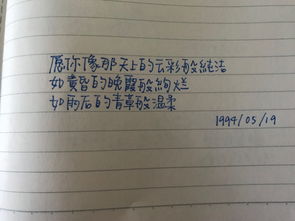 愿你像那天上的云彩般純洁
如黄昏的晚霞般絢烂
如雨后的青草般温柔
1994/05/19